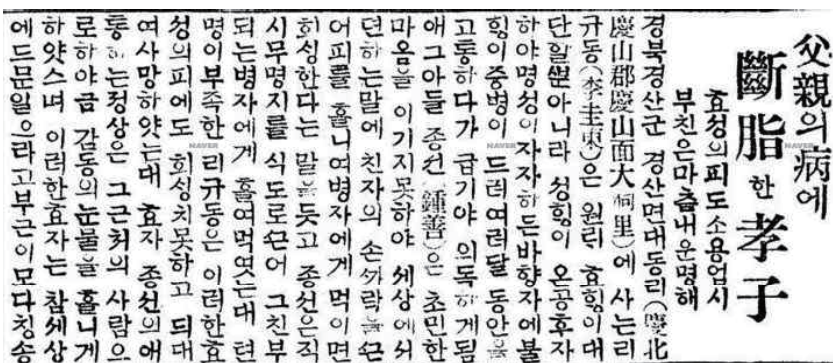 父親의病에
斷脂한孝子
효성의피도소용업시
부친은마츰내운명해
경북경산군 경산면대동리(慶北
慶山郡慶山面大祠里)에 사는리
규동(李圭東)은 원리 효힝이대
단할뿐아니라 성힝이 온공후자
하야명성이자자하든바향자에불
힝이중병이 드러여러달 동안을
고통하다가 급기야 의독하게됨
애그아들 종선(鍾善)은 초민한
마음을 이기지못하야 세상에서
뎐하는말에 친자의 손ᄭᅡ락을 ᄭᅳᆫ
어피를 흘니여병자에게 먹이면
회싱한다는 말을듯고 종선은직
시무명지를 식도로ᄭᅳᆫ어 그친부
되는병자에게 흘여먹엿는대 텬
명이부족한 리규동은 이러한효
성의피에도 회싱치못하고 되대
여사망하얏는대 효자 종선의애
통하는정상은 그근처의 사람으
로하야금 감동의눈물을 흘니게
하얏스며 이러한효자는 참세상
에드문일으라고부근이모다칭송
NAVER
NAVER
NAVER